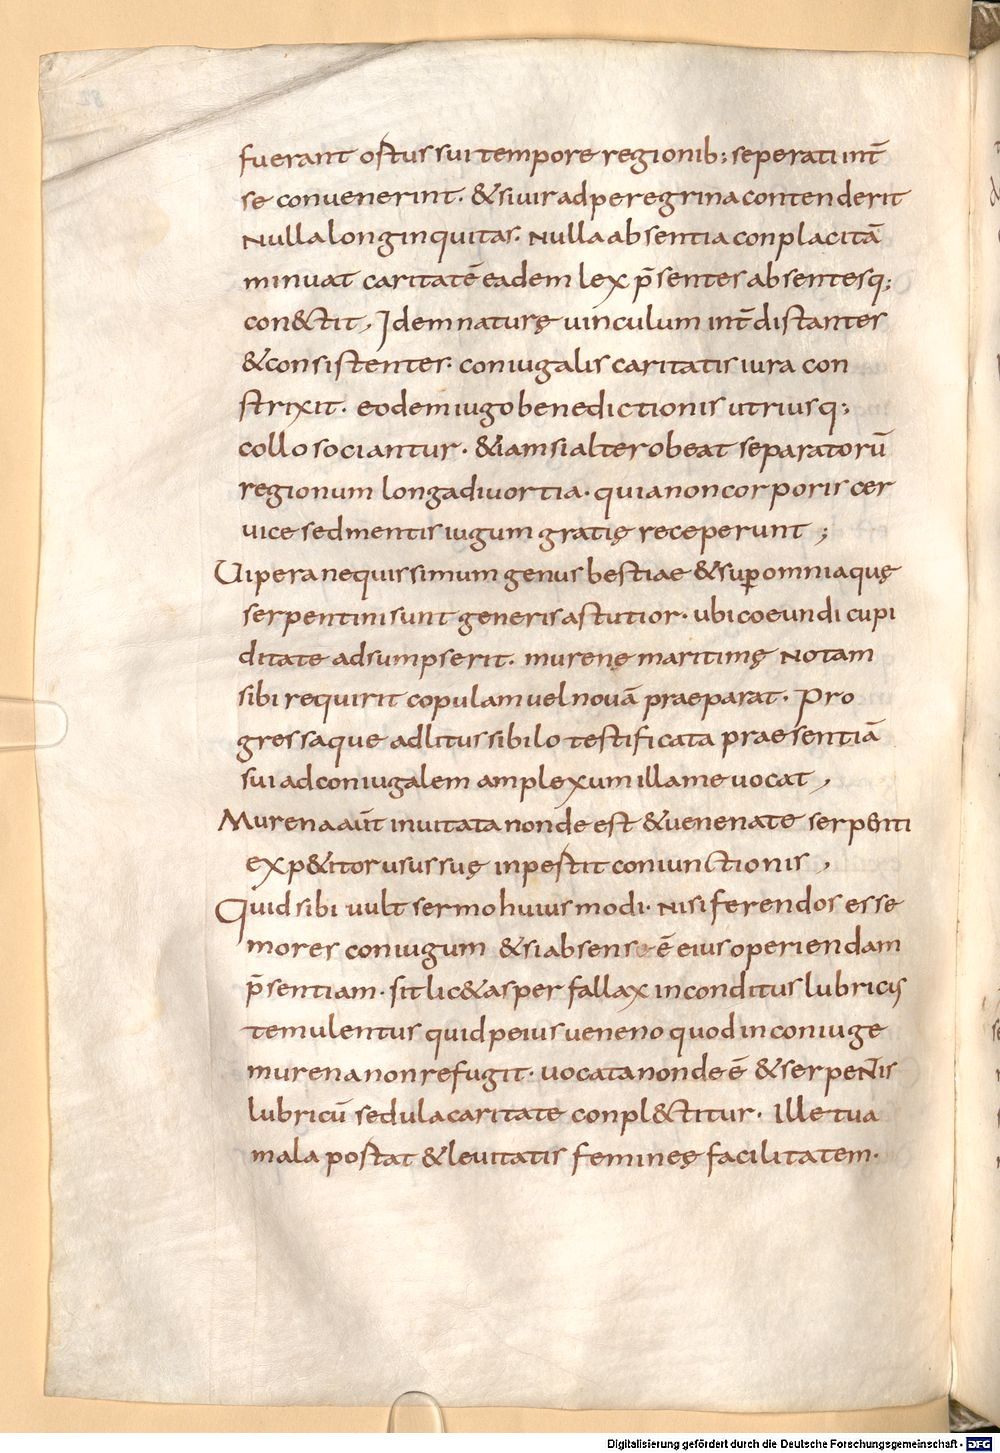 fuerant ostus sui tempore regionib; seperati int̄
se convenerint. & si vir ad peregrina contenderit
Nulla longinquitas. Nulla absentia conplacitā
minuat caritatē eadem lex p̄sentes absentesq;
con&tit, Idem naturę vinculum int̄ distantes
& consistentes. coniugalis caritatis iura con
strixit. eodem iugo benedictionis utriusq;
collo sociantur. &iam si alter obeat separatorū
regionum longa divortia. quia non corporis cer
vice sed mentis iugum gratię receperunt ;
Uipera nequissimum genus bestiae & sup̄ omnia quę
serpentini sunt generis astutior. ubi coeundi cupi
ditate adsumpserit. murenę maritimę Notam
sibi requirit copulam vel novā praeparat. Pro
gressaque ad litus sibilo testificata praesentiā
sui ad coniugalem amplexum illam evocat,
Murena aūt invitata non deest & venenate serpenti
exp&itor usus suę inpestit coniunctionis,
Quid sibi vult sermo huiusmodi. Nisi ferendos esse
mores coniugum & si absens ē eius operiendam
p̄sentiam. sit lic& asper fallax inconditus lubricis
temulentus quid peius veneno quod in coniuge
murena non refugit. vocata non deē & serpeN̄is
lubricū sedula caritate conpl&titur. Ille tua
mala postat & levitatis femineę facilitatem.
Digitalisierung gefördert durch die Deutsche Forschungsgemeinschaft - DFG